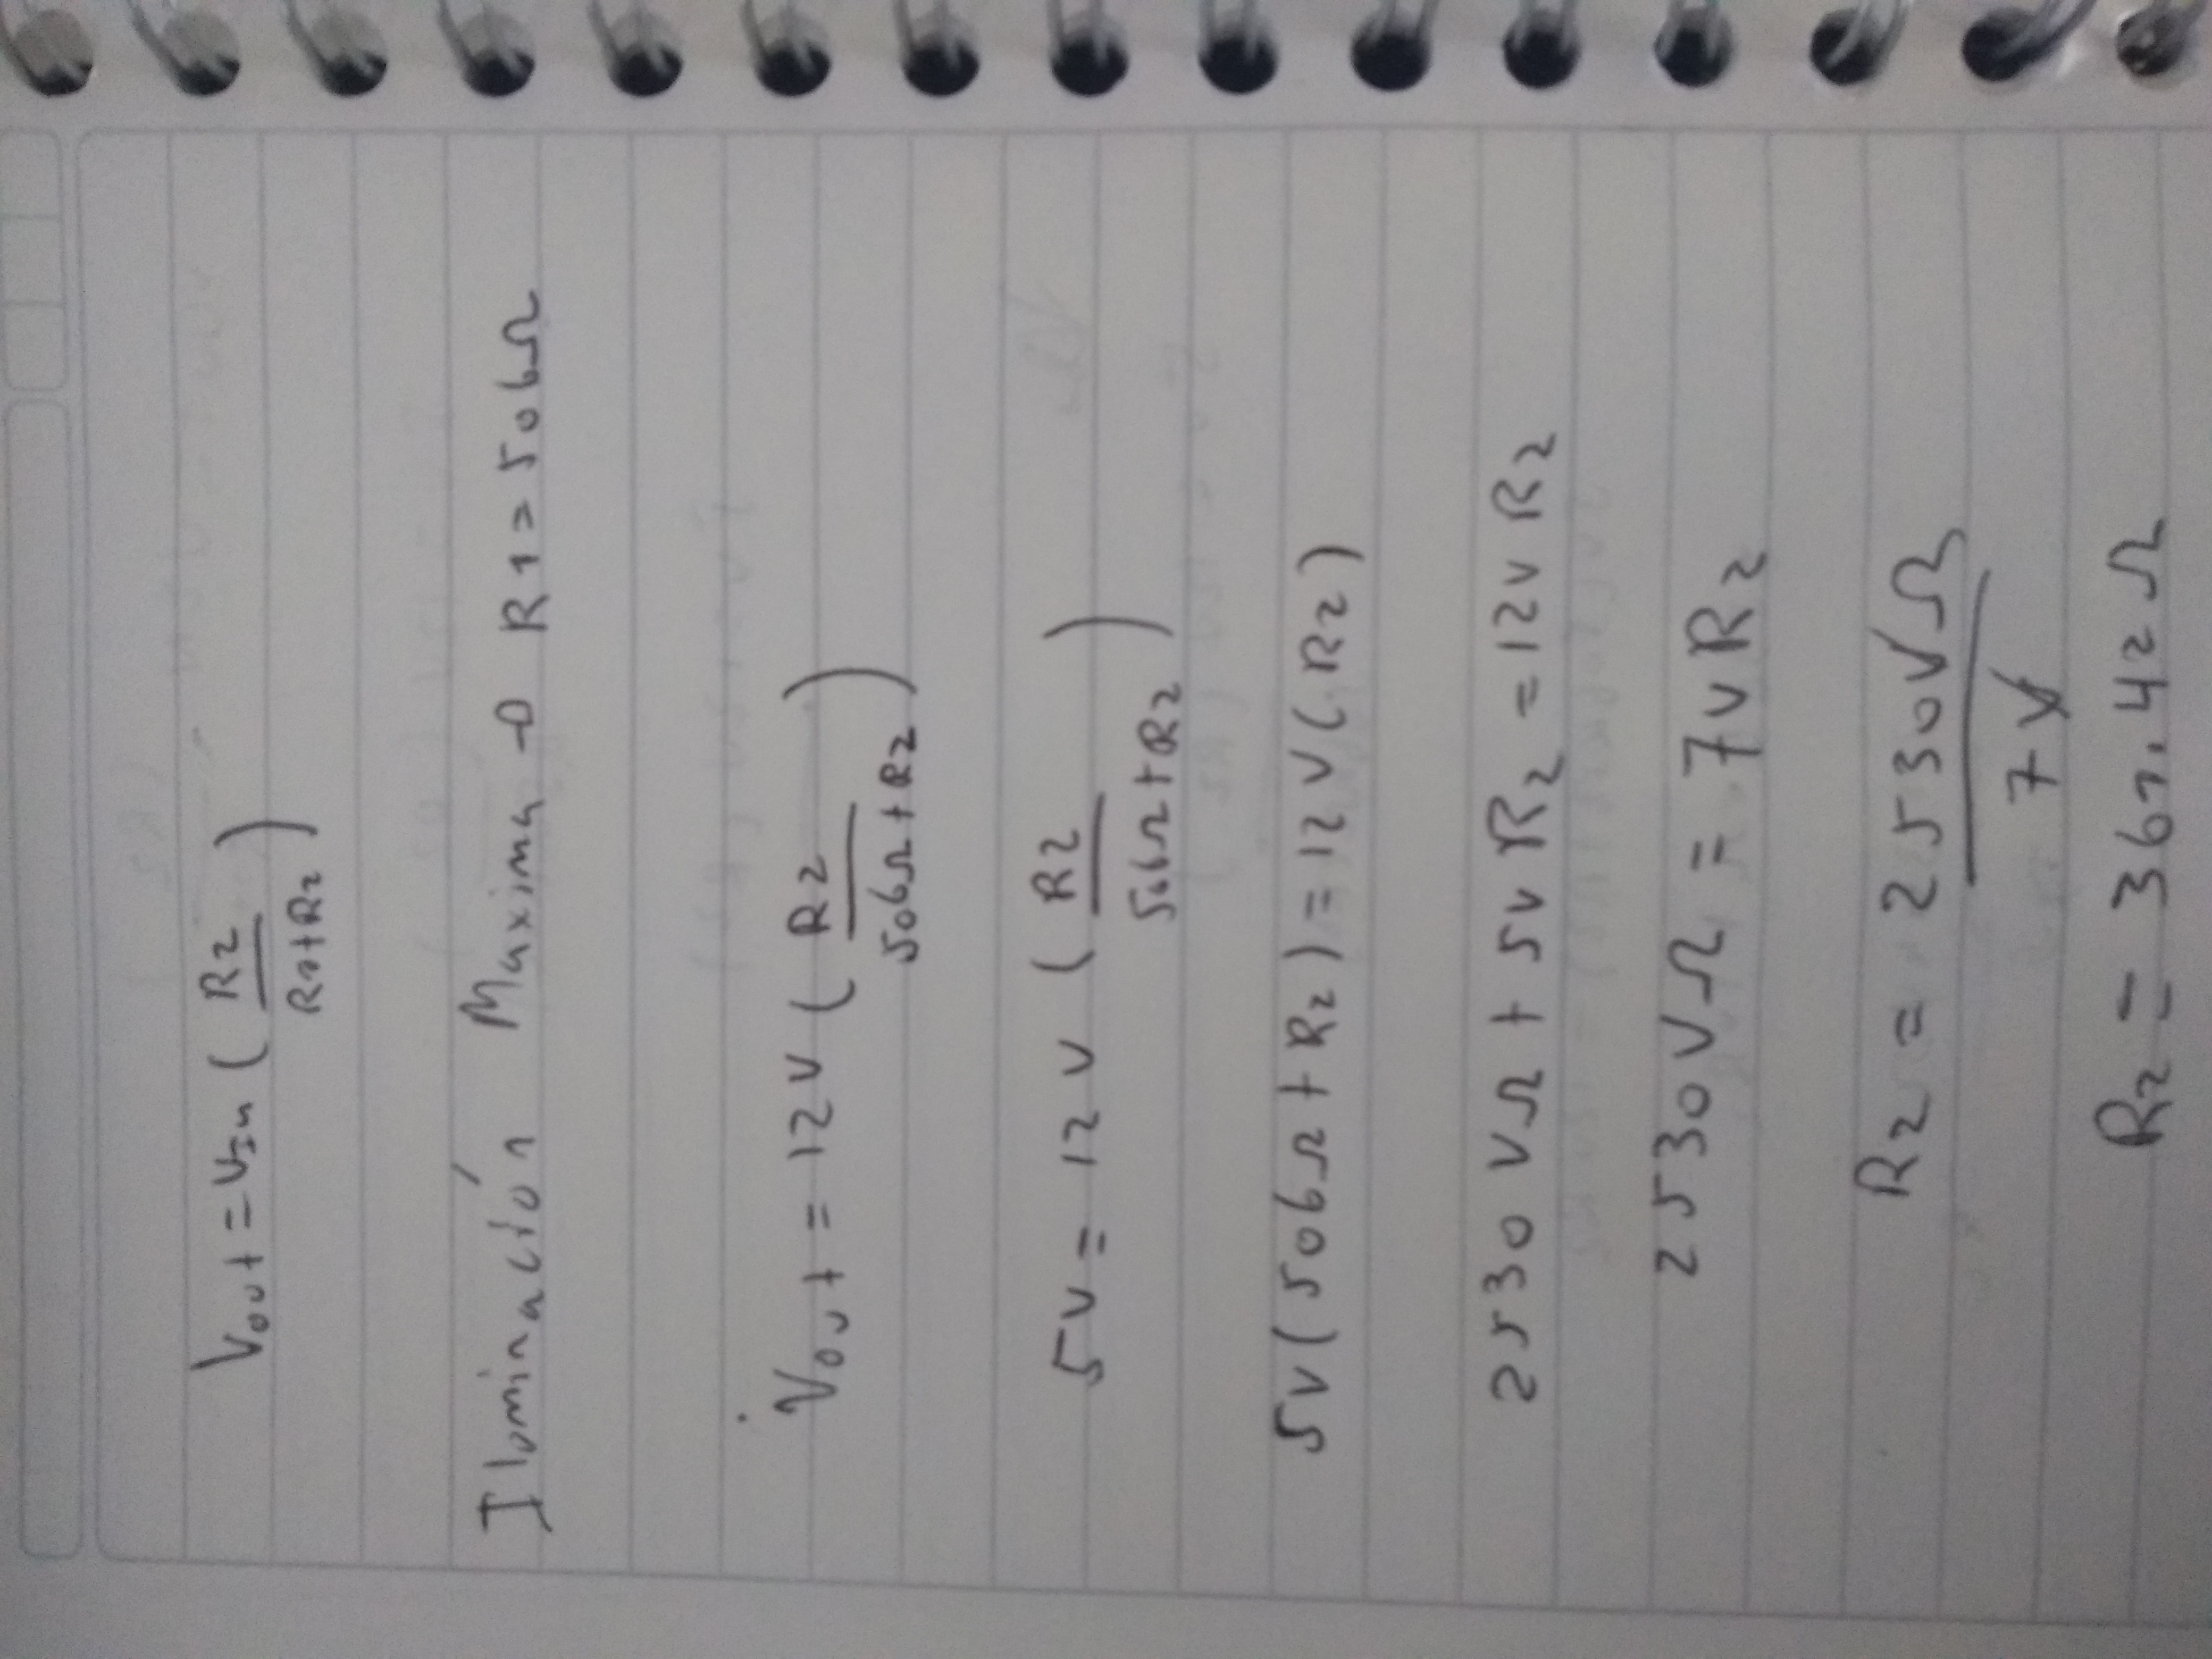 Vout = VIn ( R2 / R1+R2 )
Iluminación Maxima → R1 = 506Ω
Vout = 12V ( R2 / 506Ω+R2 )
5V = 12V ( R2 / 506Ω+R2 )
5V ( 506Ω + R2 ) = 12V ( R2 )
2530 VΩ + 5V R2 = 12V R2
2530VΩ = 7V R2
R2 = 2530VΩ / 7V
R2 = 361.42Ω